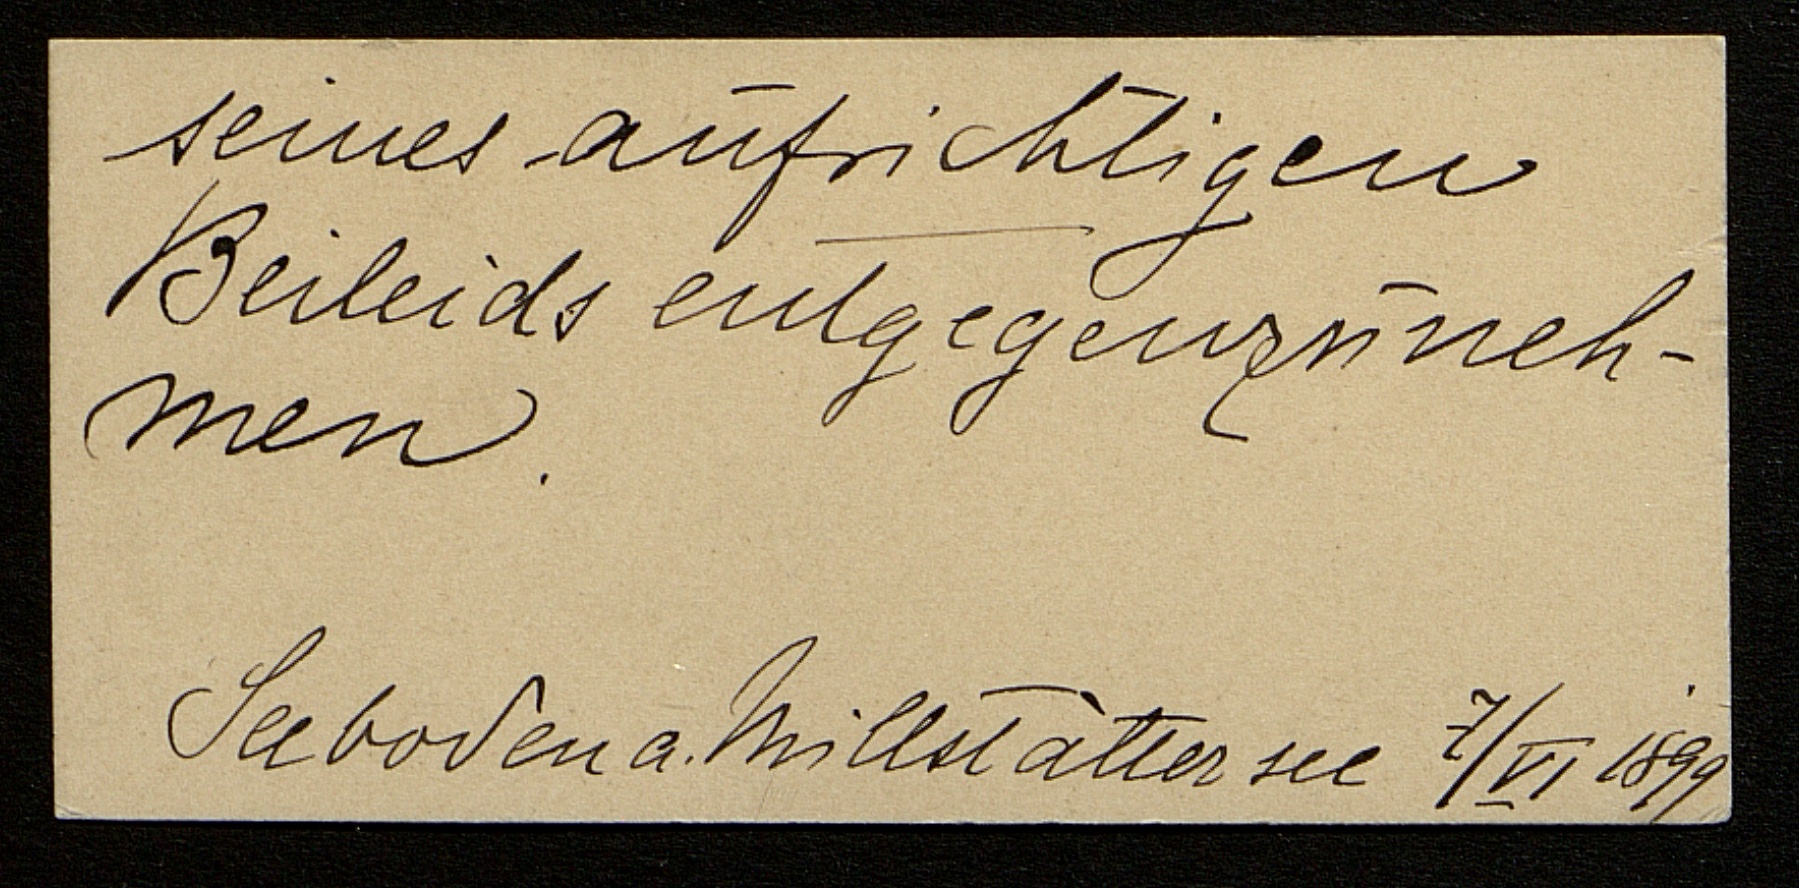 seines aufrichtigen
Beileids entgegenzuneh-
men.
Seeboden a. Millstätter see 7/VI 1899